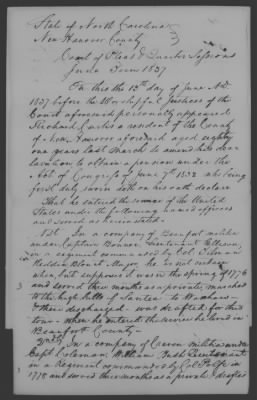 State of North Carolina
New Hanover County
Court of Pleas & Quarter Sessions
June Term 1837
On this the 13th day of June A.D.
1837 before the Worshipful Justices of the
Court aforesaid personally appeared
Richard Curtis a resident of the County
of New Hanover aforesaid aged seventy
one years last March to amend his dec
laration to obtain a pension under the
Act of Congress of June 7th 1832 who being
first duly sworn doth on his oath declare
That he entered the service of the United
States under the following named officers
and served as herein stated.
1st In a company of Beaufort militia
under Captain Bonner Lieutenant
in a regiment commanded by Col
Reddin Blount Major he is not certain
when, but supposes it was in the spring of 1776
and served three months as a private marched
to the high hills of Santee to
& then discharged was drafted for this
tour when he entered the service he lived in
Beaufort County
2nd In a company of Craven militia under
Capt Coleman William Bush Lieutenant
in a Regiment commanded by Col
1778 and served three months as a private drafted